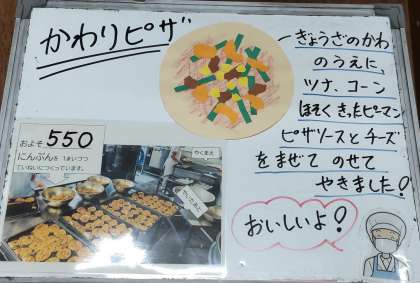 かわりピザ
ぎょうざのかわ
のうえに、
ツナ、コーン
ほそくきったピーマン
ピザソースとチーズ
をまぜて のせて
やきました!
およそ 550
にんぶんを 1まいづつ
ていねいにつくっています。
やくまえ
やいたあと
おいしいよ!